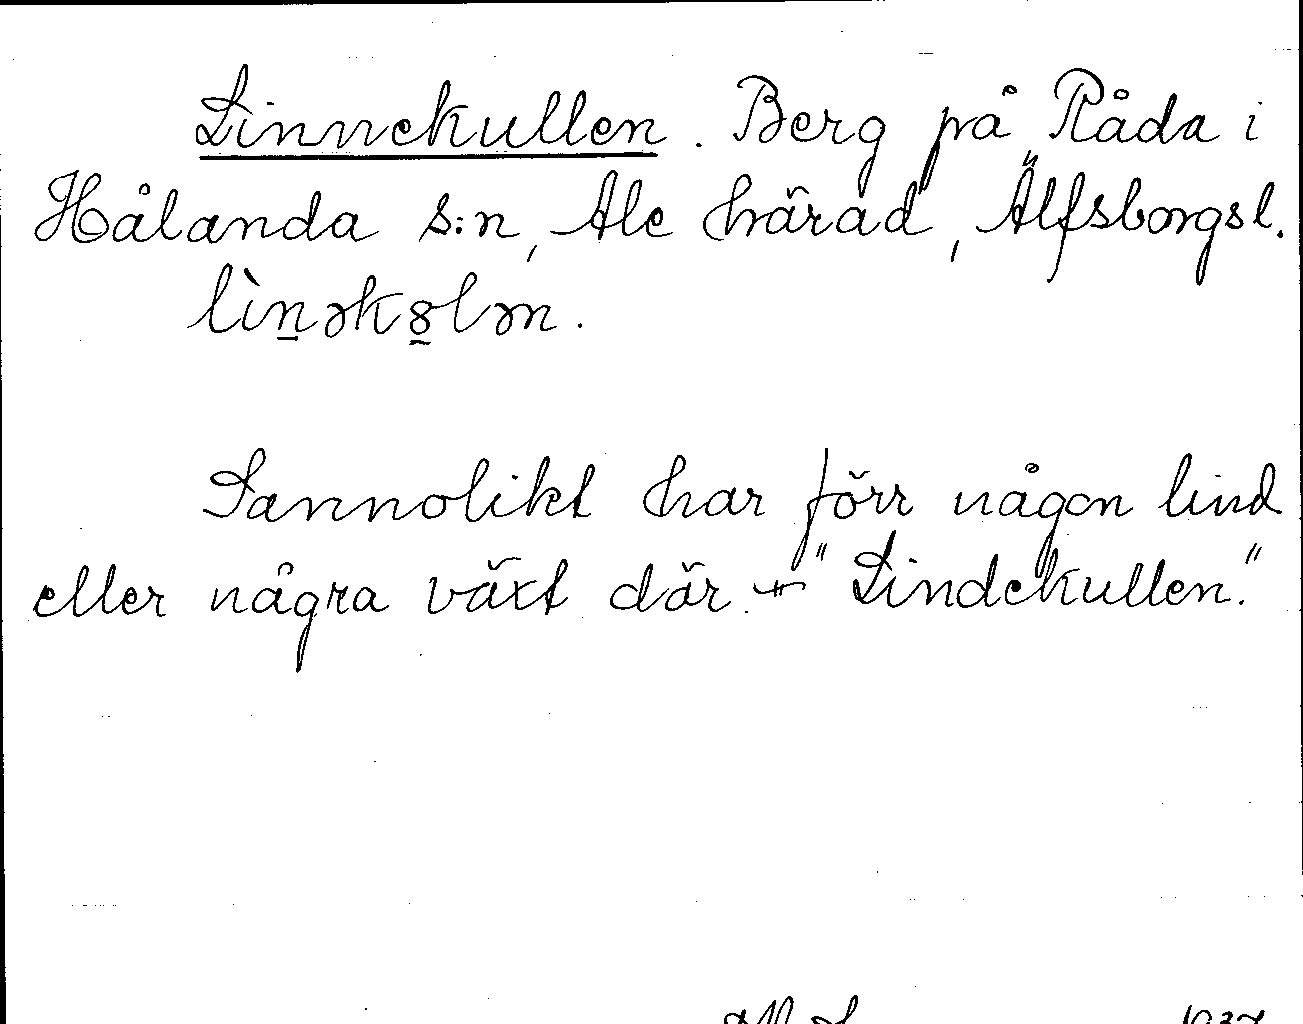 Linnekullen. Berg på Råda i
Hålanda s:n, Ale härad, Älfsborgsl.
lìnəkȣlən.
Sannolikt har förr någon lind
eller några växt där. + "Lindekullen."